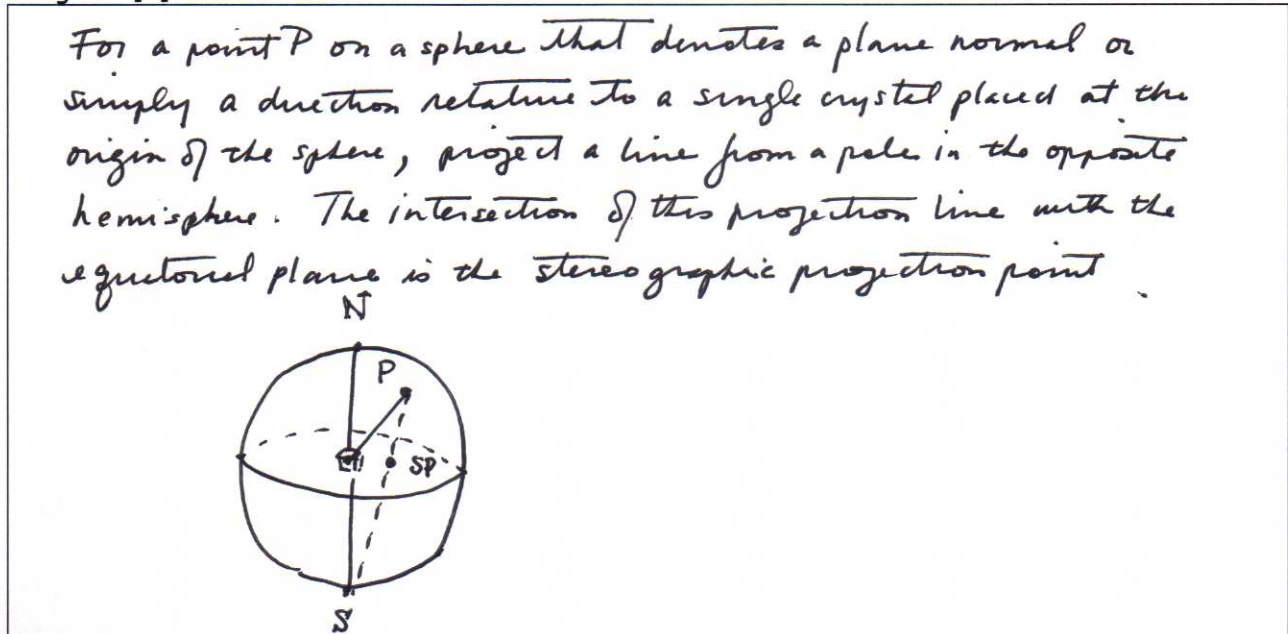 For a point P on a sphere that denotes a plane normal or
simply a direction relative to a single crystal placed at the
origin of the sphere, project a line from a pole in the opposite
hemisphere. The intersection of this projection line with the
equitorial plane is the stereographic projection point.
N
P
SP
S